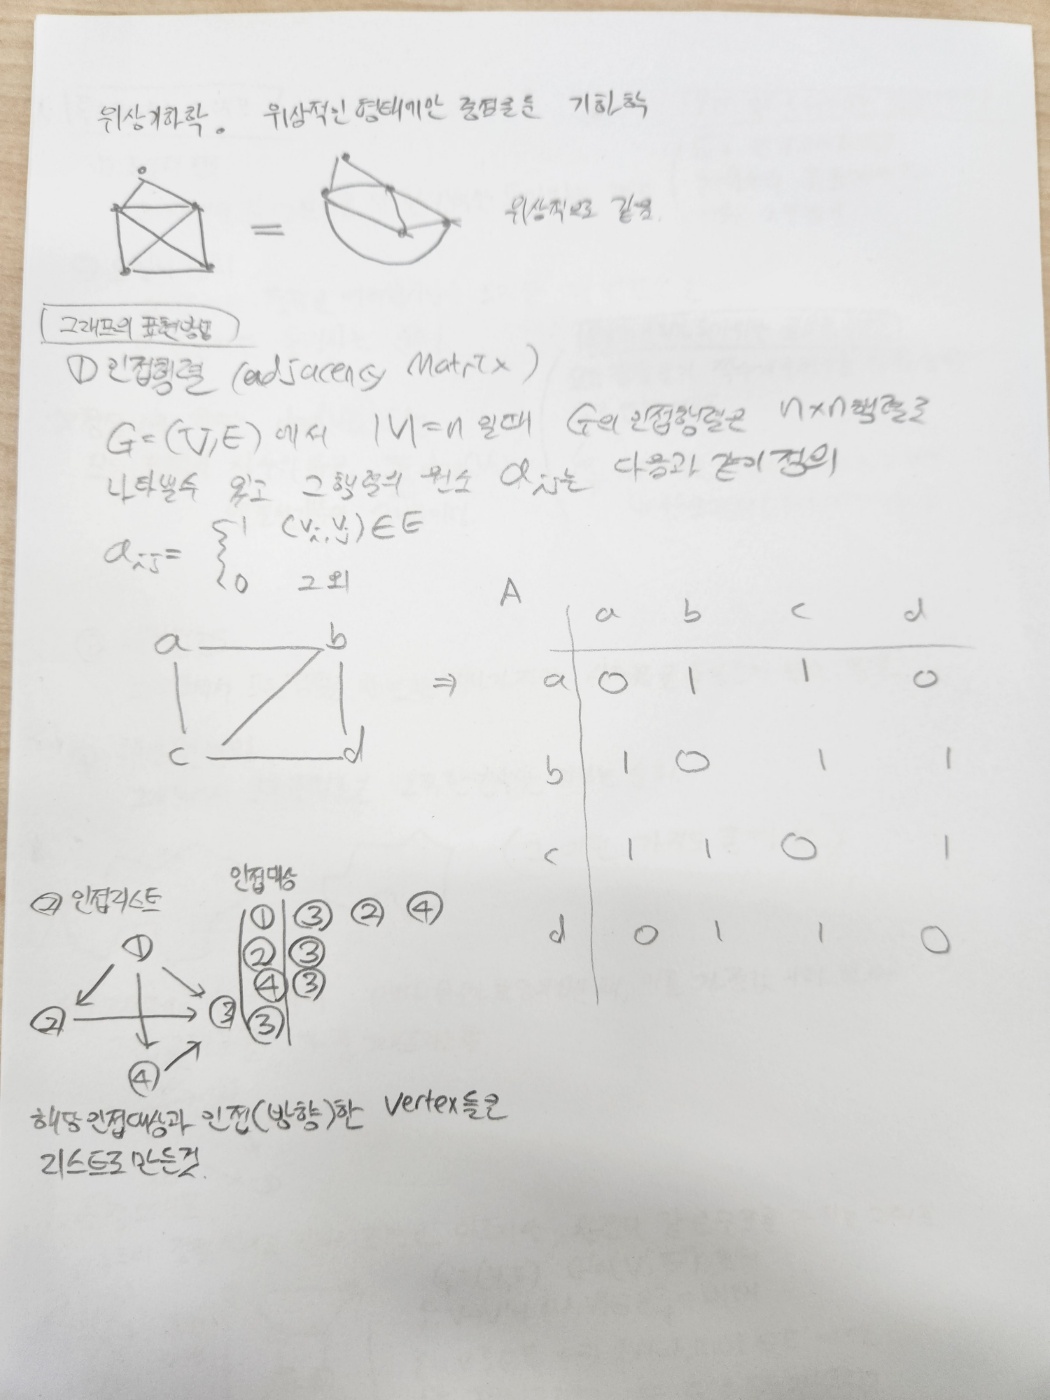 위상기하학. 위상적인 형태에만 중점을 둔 기하학
=
위상적으로 같음.
그래프의 표현방법
① 인접행렬 (adjacency Matrix)
G=(V,E)에서 |V|=n 일때 G의 인접행렬은 n×n행렬로
나타낼수 있고 그 행렬의 원소 aij는 다음과 같이 정의
aij = { 1 (vi,vj)∈E
0 그 외
a b
c d
⇒
A a b c d
a 0 1 1 0
b 1 0 1 1
c 1 1 0 1
d 0 1 1 0
② 인접리스트
①
② ③
④
인접대상
① ③ ② ④
② ③
④ ③
③
해당 인접대상과 인접(방향)한 vertex들은
리스트로 만든것.